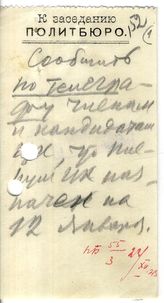 К заседанию
ПОЛИТБЮРО.
Сообщить
по телегра-
фу членам
и кандидатам
ЦК, что пле-
нум ЦК наз-
начен на
12 января.